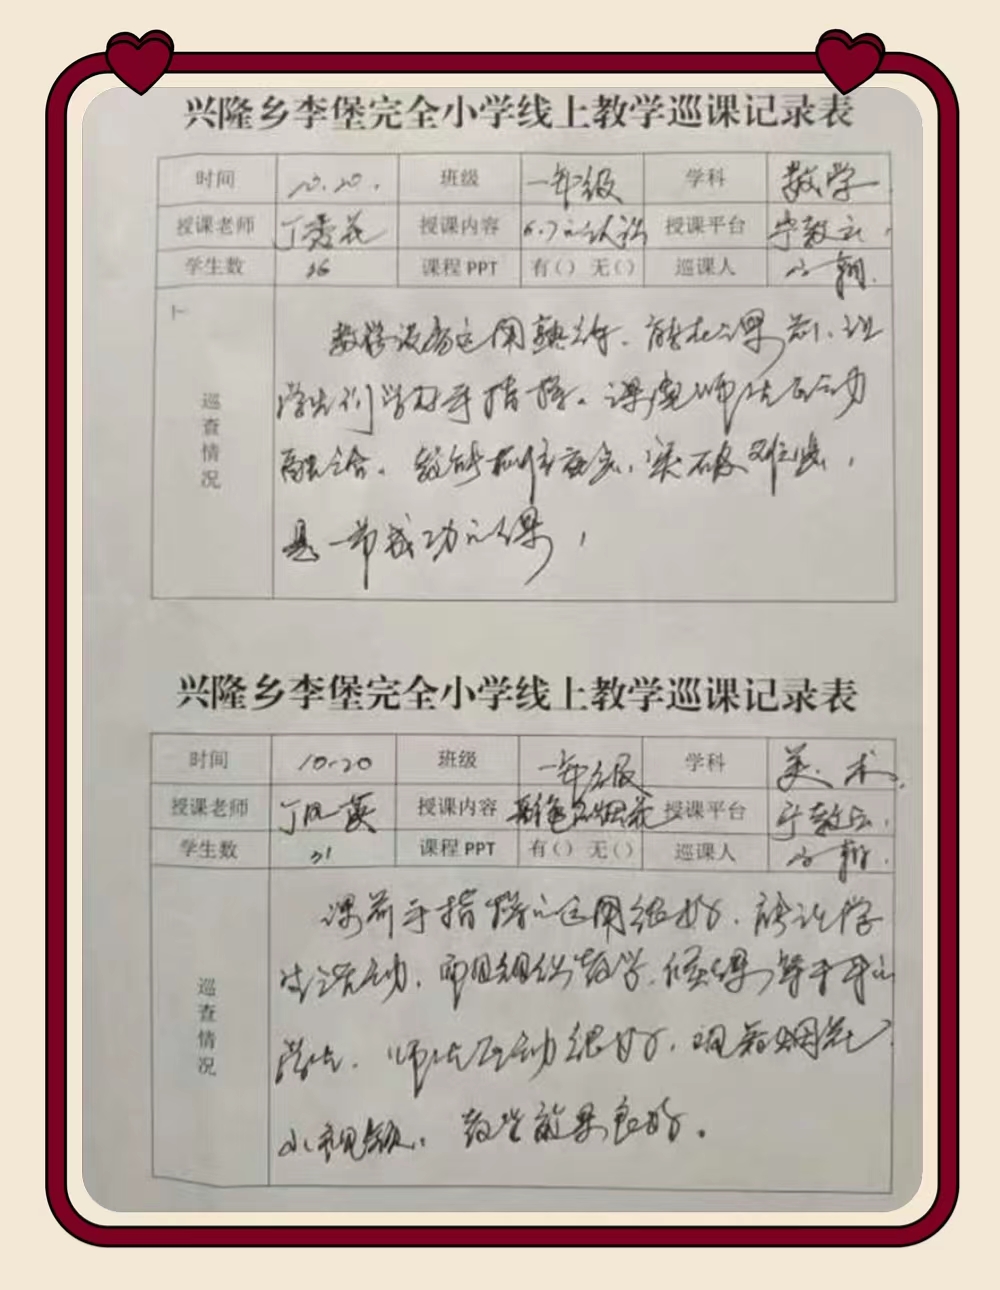 兴隆乡李堡完全小学线上教学巡课记录表
时间 10.20. 班级 一年级 学科 数学
授课老师 丁秀花 授课内容 6.7的认识 授课平台 宁教云
学生数 36 课程PPT 有（） 无（） 巡课人
巡查情况
教学设备运用熟练、能在课前、让
学生们学习手指操。课堂师生互动
融合。教师抓住重点，突破难点，
是一节成功的课，
兴隆乡李堡完全小学线上教学巡课记录表
时间 10.20 班级 一年级 学科 美术
授课老师 授课内容 彩色的烟花 授课平台 宁教云
学生数 31 课程PPT 有（） 无（） 巡课人
巡查情况
课前手指操的运用很好，能让学
生活动，组织教学，
学生，师生互动很好，观看烟花
小视频，教学效果良好。